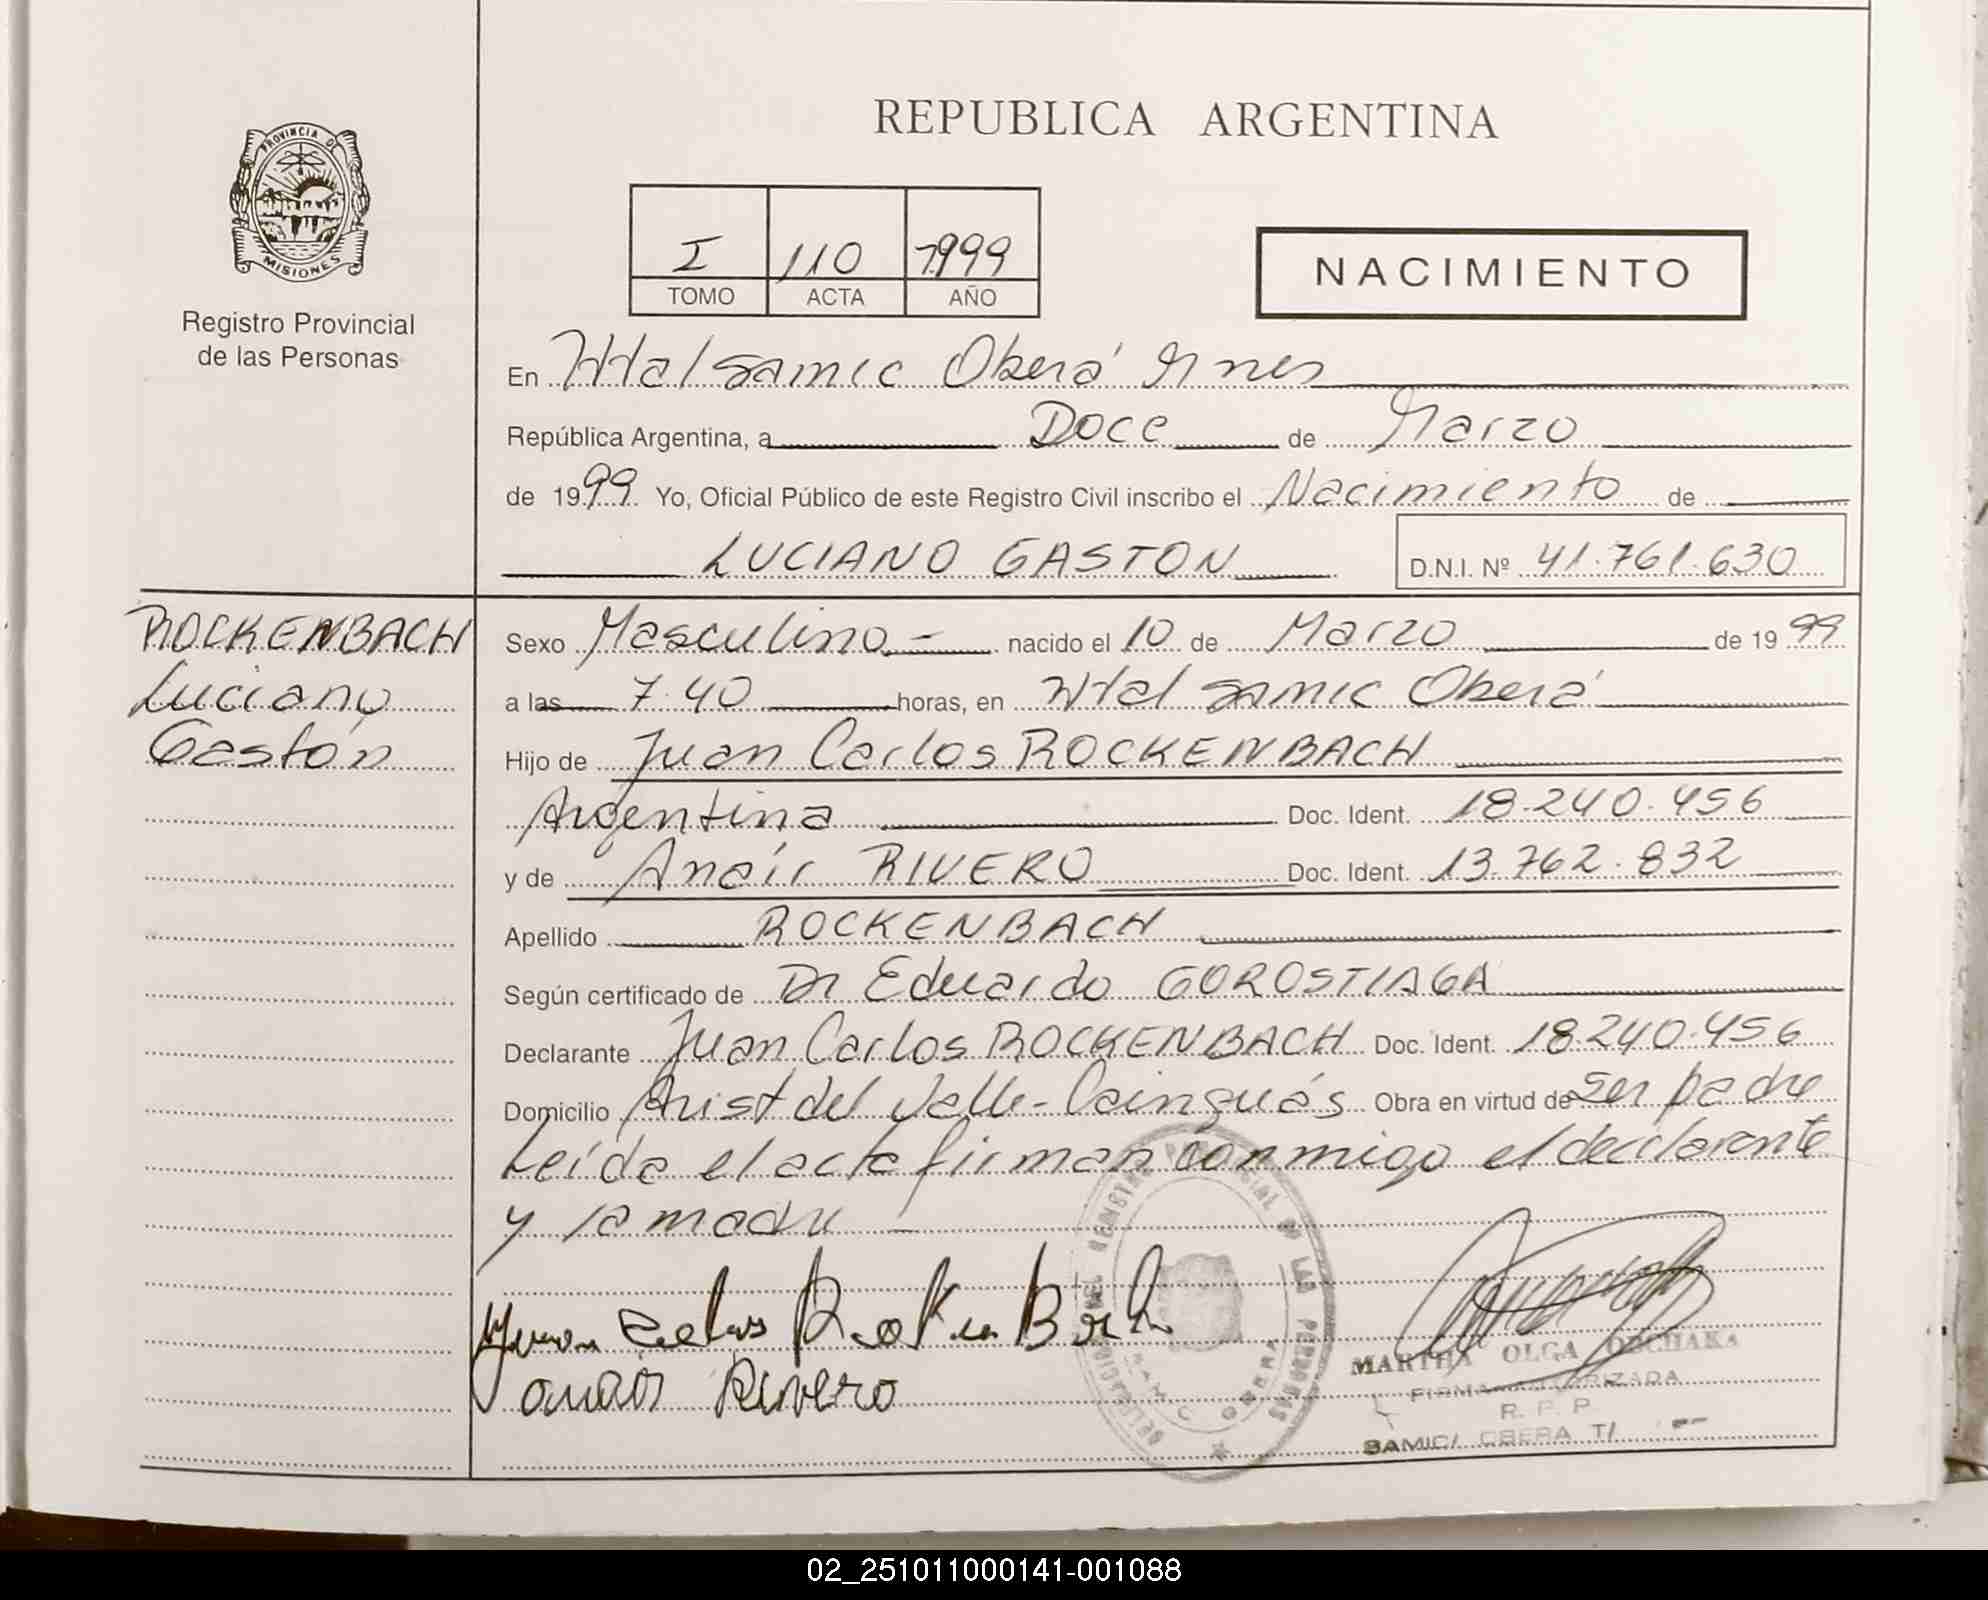 REPUBLICA ARGENTINA
PROVINCIA DE
MISIONES
Registro Provincial
de las Personas
I 110 1999
TOMO ACTA AÑO
NACIMIENTO
En Htal Samic Oberá Mnes
República Argentina, a Doce de Marzo
de 1999 Yo, Oficial Público de este Registro Civil inscribo el Nacimiento de
LUCIANO GASTON D.N.I. Nº 41.761.630
ROCKENBACH
Luciano
Gastón
Sexo Masculino.- nacido el 10 de Marzo de 1999
a las 7.40 horas, en Htal Samic Oberá
Hijo de Juan Carlos ROCKENBACH
Argentina Doc. Ident. 18.240.456
y de Anair RIVERO Doc. Ident. 13.762.832
Apellido ROCKENBACH
Según certificado de Dr Eduardo GOROSTIAGA
Declarante Juan Carlos ROCKENBACH Doc. Ident. 18.240.456
Domicilio Arist del Valle-Cainguás Obra en virtud de ser padre
Leída el acta firman conmigo el declarante
y la madre -
DELEGACION DEL REGISTRO PROVINCIAL DE LAS PERSONAS
OBERA
Rivero
MARTHA OLGA
FIRMA AUTORIZADA
R. P. P.
SAMIC/ OBERA T/
02_251011000141-001088